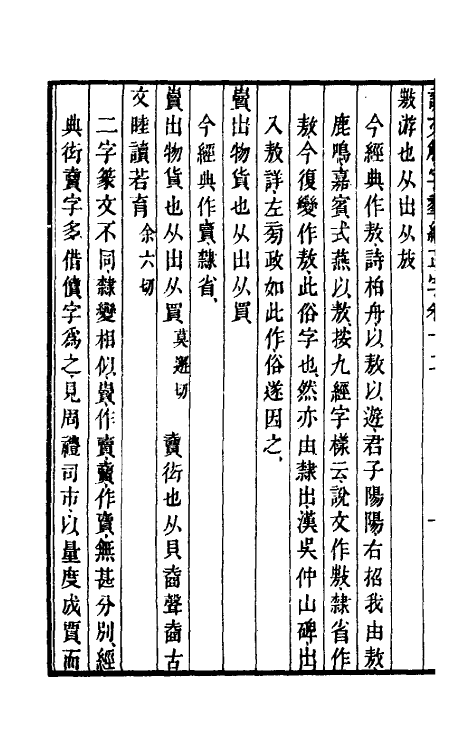 說文解字羣經正字卷十二
敖游也从出从放
今經典作敖詩柏舟以敖以遊君子陽陽右招我由敖
鹿鳴嘉賓式燕以敖按九經字樣云說文作敖隸省作
敖今復變作敖此俗字也然亦由隸出漢吳仲山碑出
入敖詳左旁政如此作俗遂因之
賣出物貨也从出从買
今經典作賣隸省
賣出物貨也从出从買莫邂切　賣衒也从貝𡍬聲𡍬古
文睦讀若育余六切
二字篆文不同隸變相似賣作賣賣作賣無甚分別經
典衒賣字多借儥字爲之見周禮司市以量度成賈而